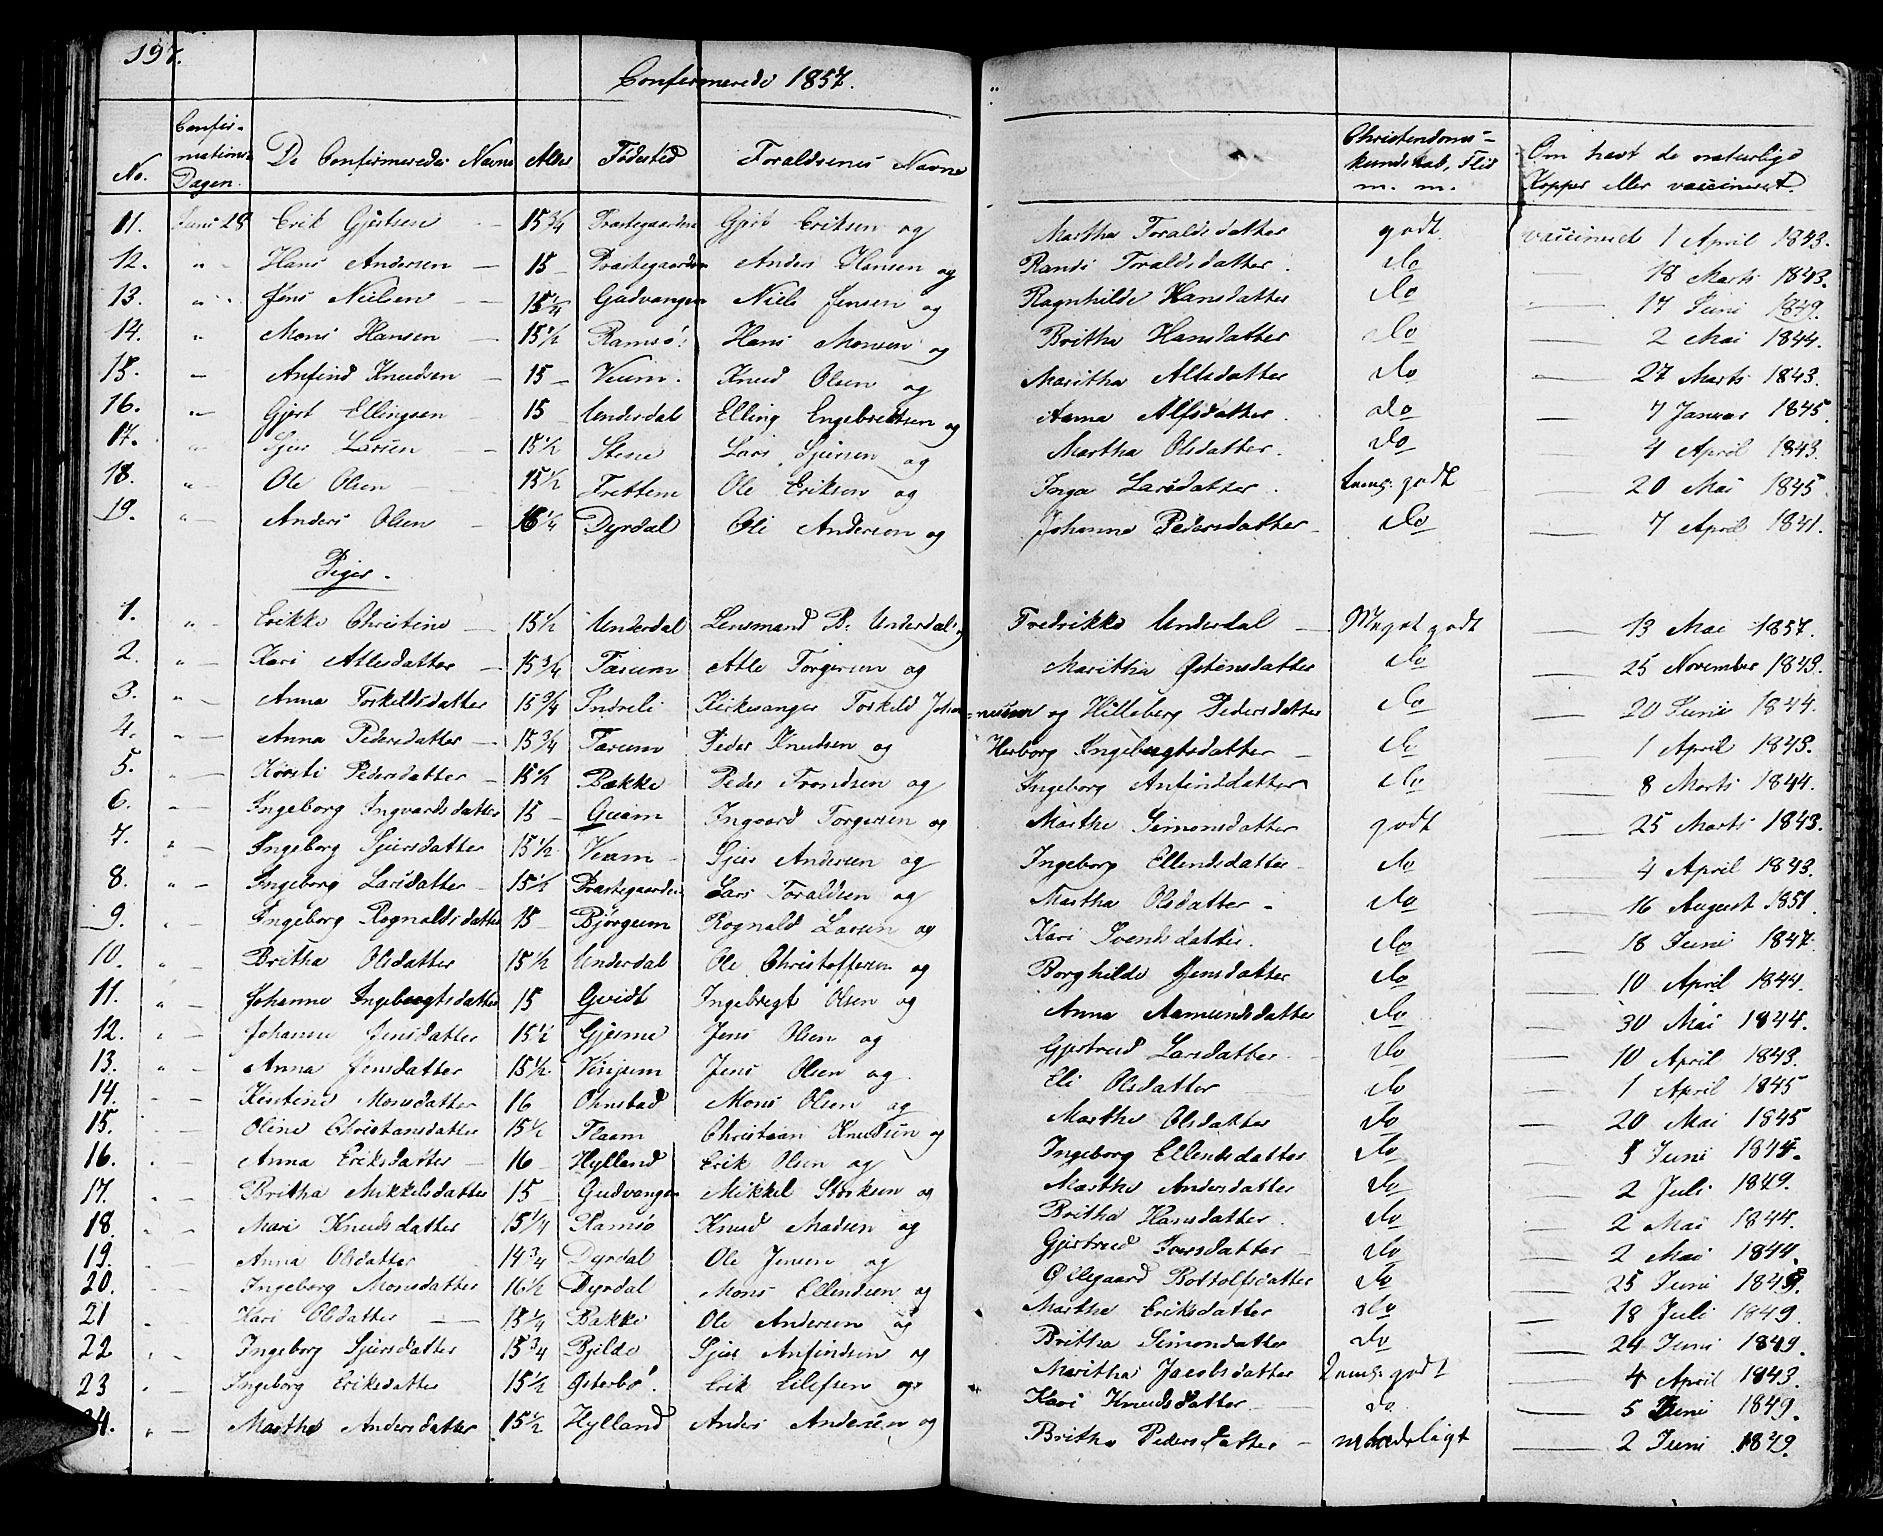 197.
Confirmerede 1857.
No. Confir-mations Dagen. De Confirmeredes Navne Alder Fødested Forældrenes Navne Christendoms-kundskab, Flid m. m. Om havt de naturlige Kopper eller vaccineret.
11. Juni 28 Erik Gjertsen — 15 3/4 Præstegaarden Gjert Eriksen og Martha Toraldsdatter godt vaccineret 1 April 1843.
12. " - Hans Andersen — 15 — Præstegaarden Anders Hansen og Randi Toraldsdatter. do — 18 Marts 1843.
13. " - Jens Nielsen — 15 1/4 Gudvangen Niels Jensen og Ragnhilde Hansdatter do — 17 Juni 1849.
14. " Mons Hansen — 15 1/2 Ramsø. Hans Monsen og Britha Hansdatter do — 2 Mai 1844.
15. " Anfind Knudsen — 15 — Veum. Knud Olsen og Maritha Atlesdatter do — 27 Marts 1843.
16. " Gjert Ellingsen 15 — Underdal Elling Engebretsen og Anna Alfsdatter. do — 7 Januar 1845.
17. " Sjur Larsen — 15 1/2 Stene Lars Sjursen og Martha Olsdatter. do — 4 April 1843.
18. " - Ole Olsen — 15 1/2 Frettem Ole Eriksen og Inga Larsdatter. temf: godt — 20 Mai 1845.
19. " - Anders Olsen — 16 1/4 Dyrdal Ole Andersen og Johanna Pedersdatter - do — 7 April 1841.
Piger.
1. " - Erikke Christine — 15 1/2 Underdal Lensmand B: Underdal og Fredrikke Underdal — Meget godt — 13 Mai 1857.
2. " - Kari Atlesdatter — 15 3/4 Tærum Atle Torgersen og Maritha Østensdatter do — 25 November 1843.
3. " - Anna Torkildsdatter 15 3/4 Indreli Kirkesanger Torkild Johan-nesen og Hilleborg Pedersdatter do — 20 Juni 1844.
4. " - Anna Pedersdatter — 15 3/4 Tærum Peder Knudsen og Herborg Ingebregtsdatter — do — 1 April 1843.
5. " - Kirsti Pedersdatter — 15 1/2 Bakke Peder Trondsen og Ingeborg Anfindsdatter do — 8 Marts 1844.
6. " - Ingeborg Ingvardsdatter 15 — Qvam Ingvard Torgersen og Marthe Simonsdatter godt — 25 Marts 1843.
7. " - Ingeborg Sjursdatter 15 1/2 Veum — Sjur Andersen og Ingeborg Ellendsdatter — do — 4 April 1843.
8. " - Ingeborg Larsdatter — 15 1/2 Præstegaarden Lars Toraldsen og Martha Olsdatter - do — 16 August 1851.
9. " - Ingeborg Rognaldsdatter 15 — Bjørgum Rognald Larsen og Kari Svendsdatter. do — 18 Juni 1847.
10. " - Britha Olsdatter 15 1/2 Underdal Ole Christoffersen og Borghilde Jensdatter do — 10 April 1844.
11. " - Johanne Ingebregtsdatter 15 Gvidt Ingebregt Olsen og Anna Aamundsdatter do — 30 Mai 1844.
12. " - Johanne Jensdatter 15 1/2 Gjerme Jens Olsen og Gjertrud Larsdatter do — 10 April 1843.
13. " - Anna Jensdatter 15 1/2 Vinjum Jens Olsen og Eli Olsdatter do — 1 April 1845
14. - - Kistine Monsdatter 16 Ohnstad Mons Olsen og Martha Olsdatter do — 20 Mai 1845
15. Oline Christiansdatter 15 1/2 Flaam Christian Knudsen og Ingeborg Ellendsdatter do — 3 Juni 1844.
16. " - Anna Eriksdatter — 16 — Hylland Erik Olsen og Marthe Andersdatter do — 2 Juli 1849.
17. " - Britha Mikkelsdatter 15 — Gudvangen Mikkel Størksen og Britha Hansdatter. do — 2 Mai 1844.
18. " - Mari Knudsdatter 15 1/4 Ramsø Knud Madsen og Gjertrud Iversdatter do — 2 Mai 1844.
19. - - Anna Olsdatter 14 3/4 Dyrdal Ole Jensen og Øllegaard Bottolfsdatter do — 25 Juni 1849.
20. - - Ingeborg Monsdatter 16 1/2 Dyrdal Mons Ellendsen og Martha Eriksdatter do — 18 Juli 1849.
21 - Kari Olsdatter — 15 1/4 Bakke Ole Andersen og Britha Simonsdatter do — 24 Juni 1849.
22 " - Ingeborg Sjursdatter 15 3/4 Bjilde Sjur Anfindsen og Maritha Jacobsdatter temf: godt — 4 April 1843.
23 " - Ingeborg Eriksdatter 15 1/2 Østerbø. Erik Eilefsen og Kari Knudsdatter — do. — 5 Juni 1849.
24. " - Martha Andersdatter 15 1/2 Hylland Anders Andersen og Britha Pedersdatter — maadeligt — 2 Juni 1849.